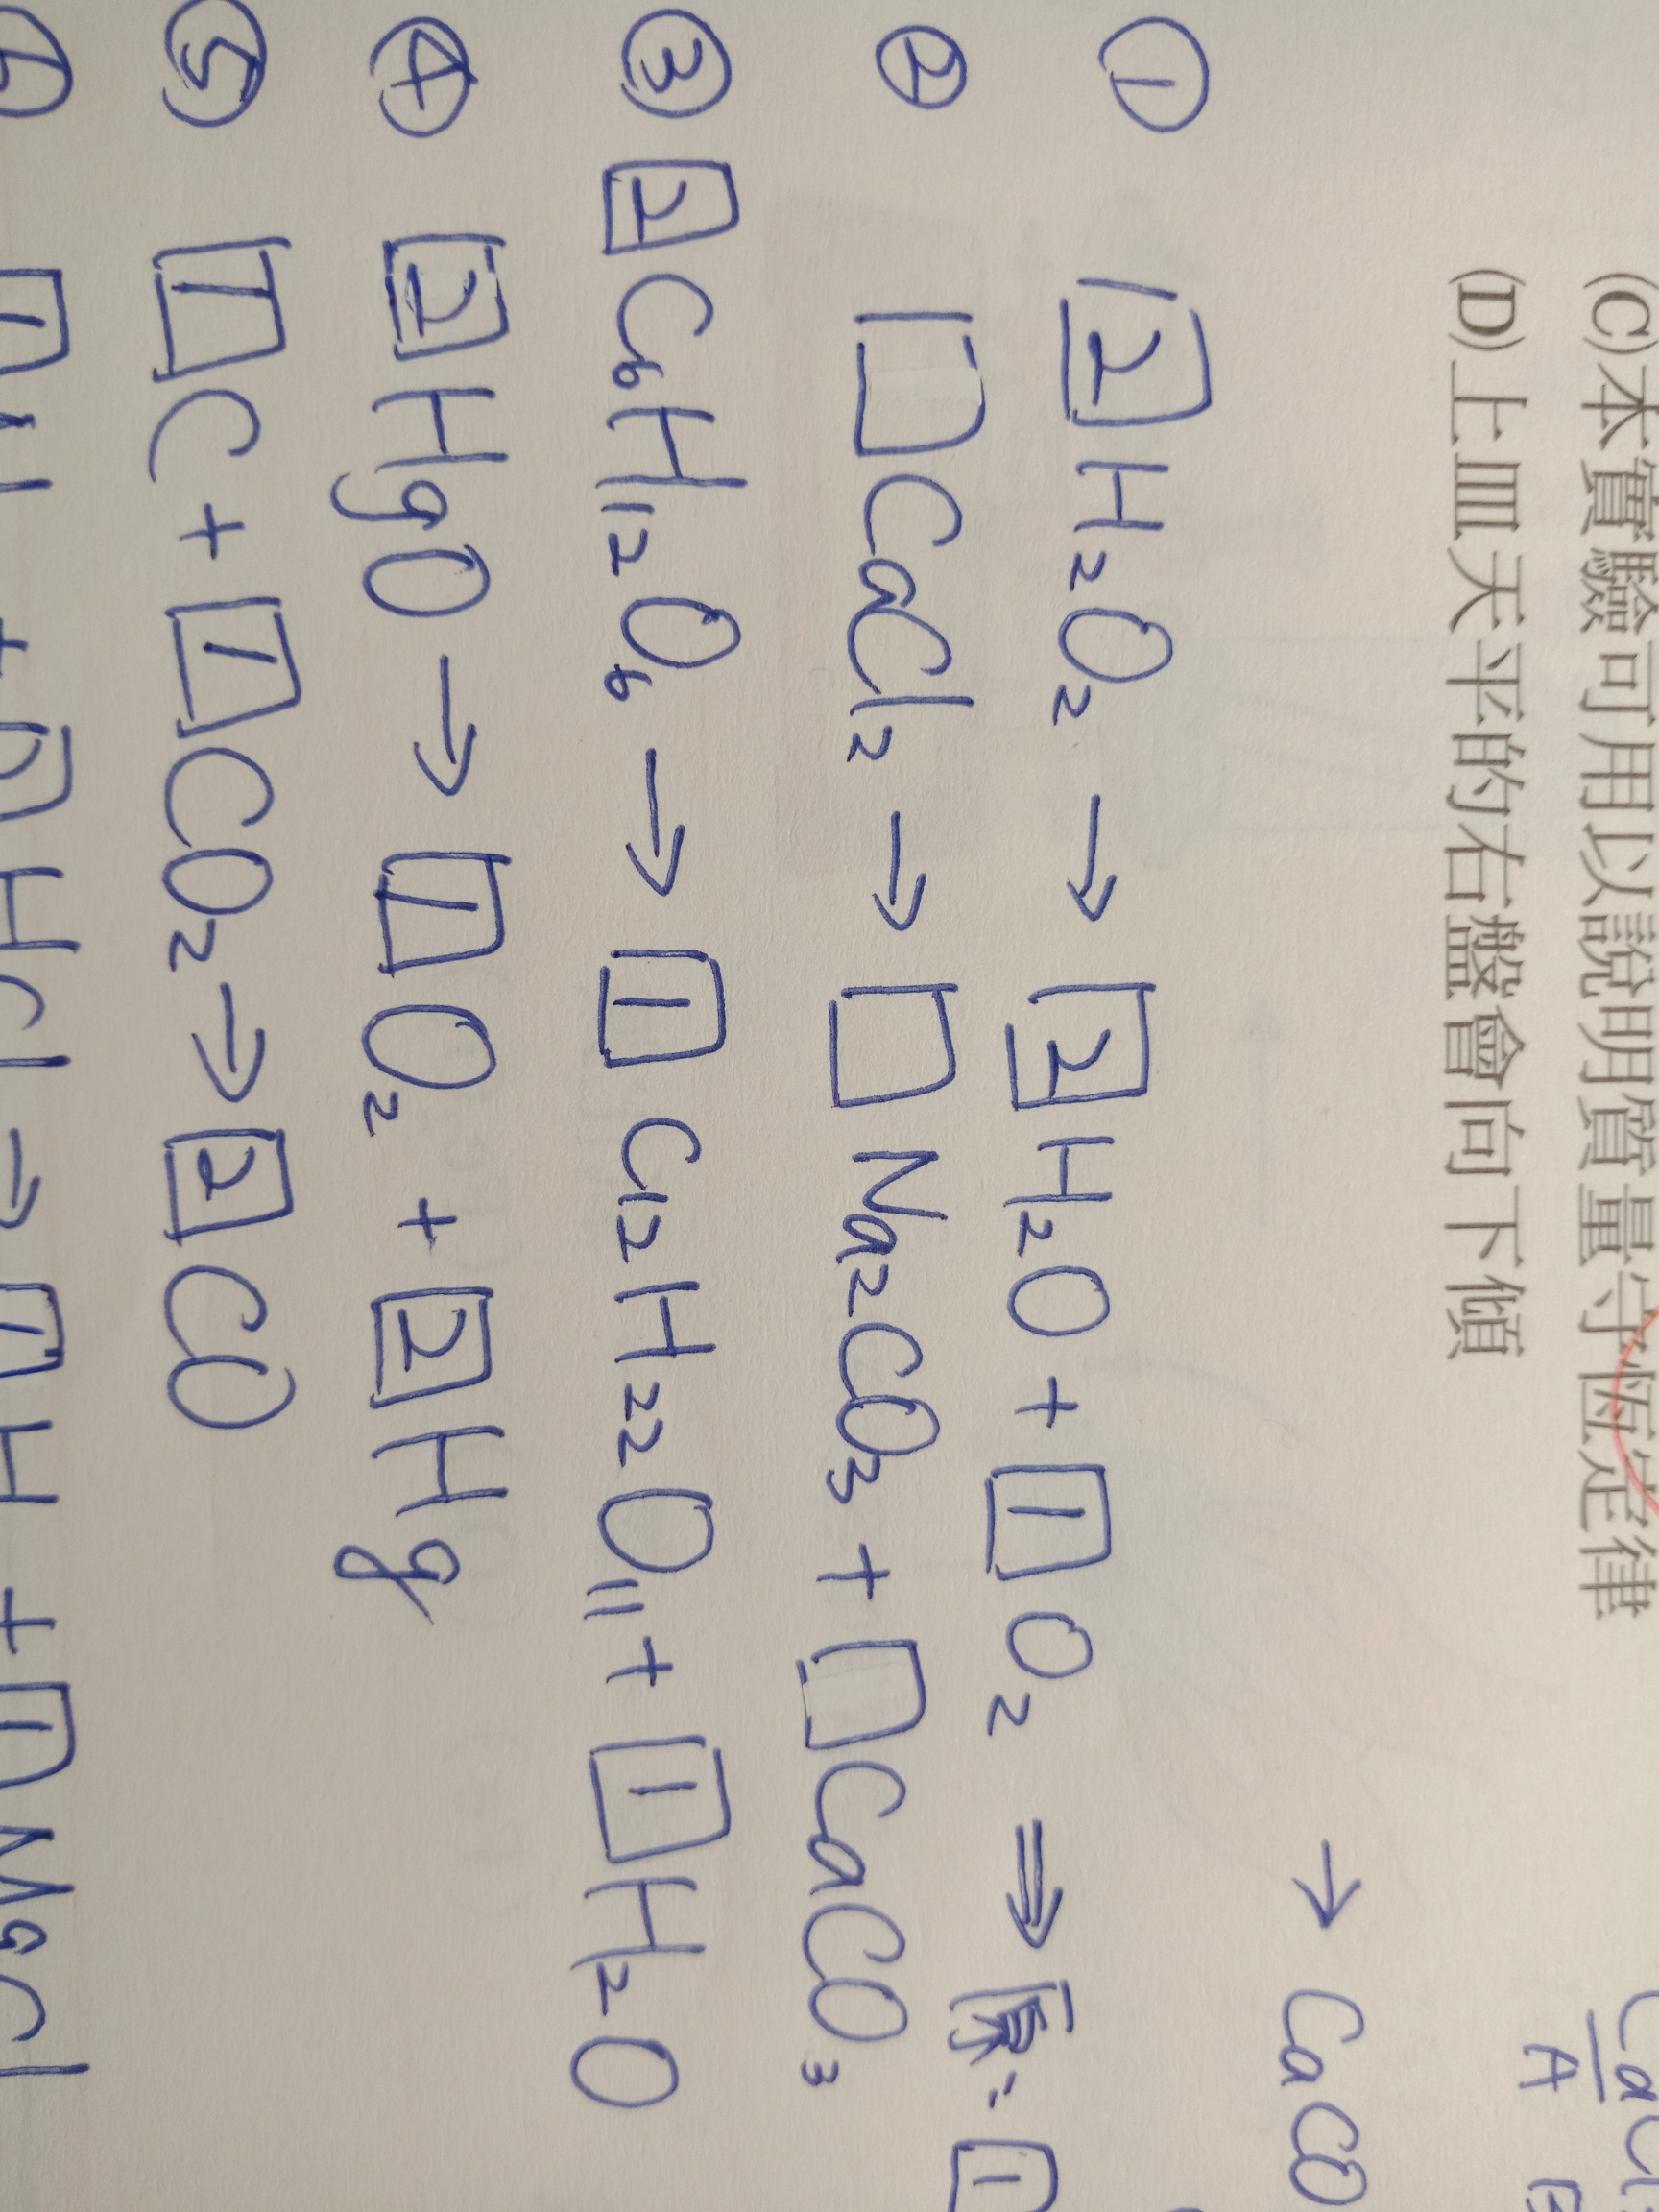 (C)本實驗可用以說明質量守恆定律
(D)上皿天平的右盤會向下傾
CaCl
A
→ CaCO
① 2 H₂O₂ → 2 H₂O + 1 O₂ ⇒ 原: 1
② □ CaCl₂ → □ Na₂CO₃ + □ CaCO₃
③ 2 C₆H₁₂O₆ → 1 C₁₂H₂₂O₁₁ + 1 H₂O
④ 2 HgO → 1 O₂ + 2 Hg
⑤ 1 C + 1 CO₂ → 2 CO